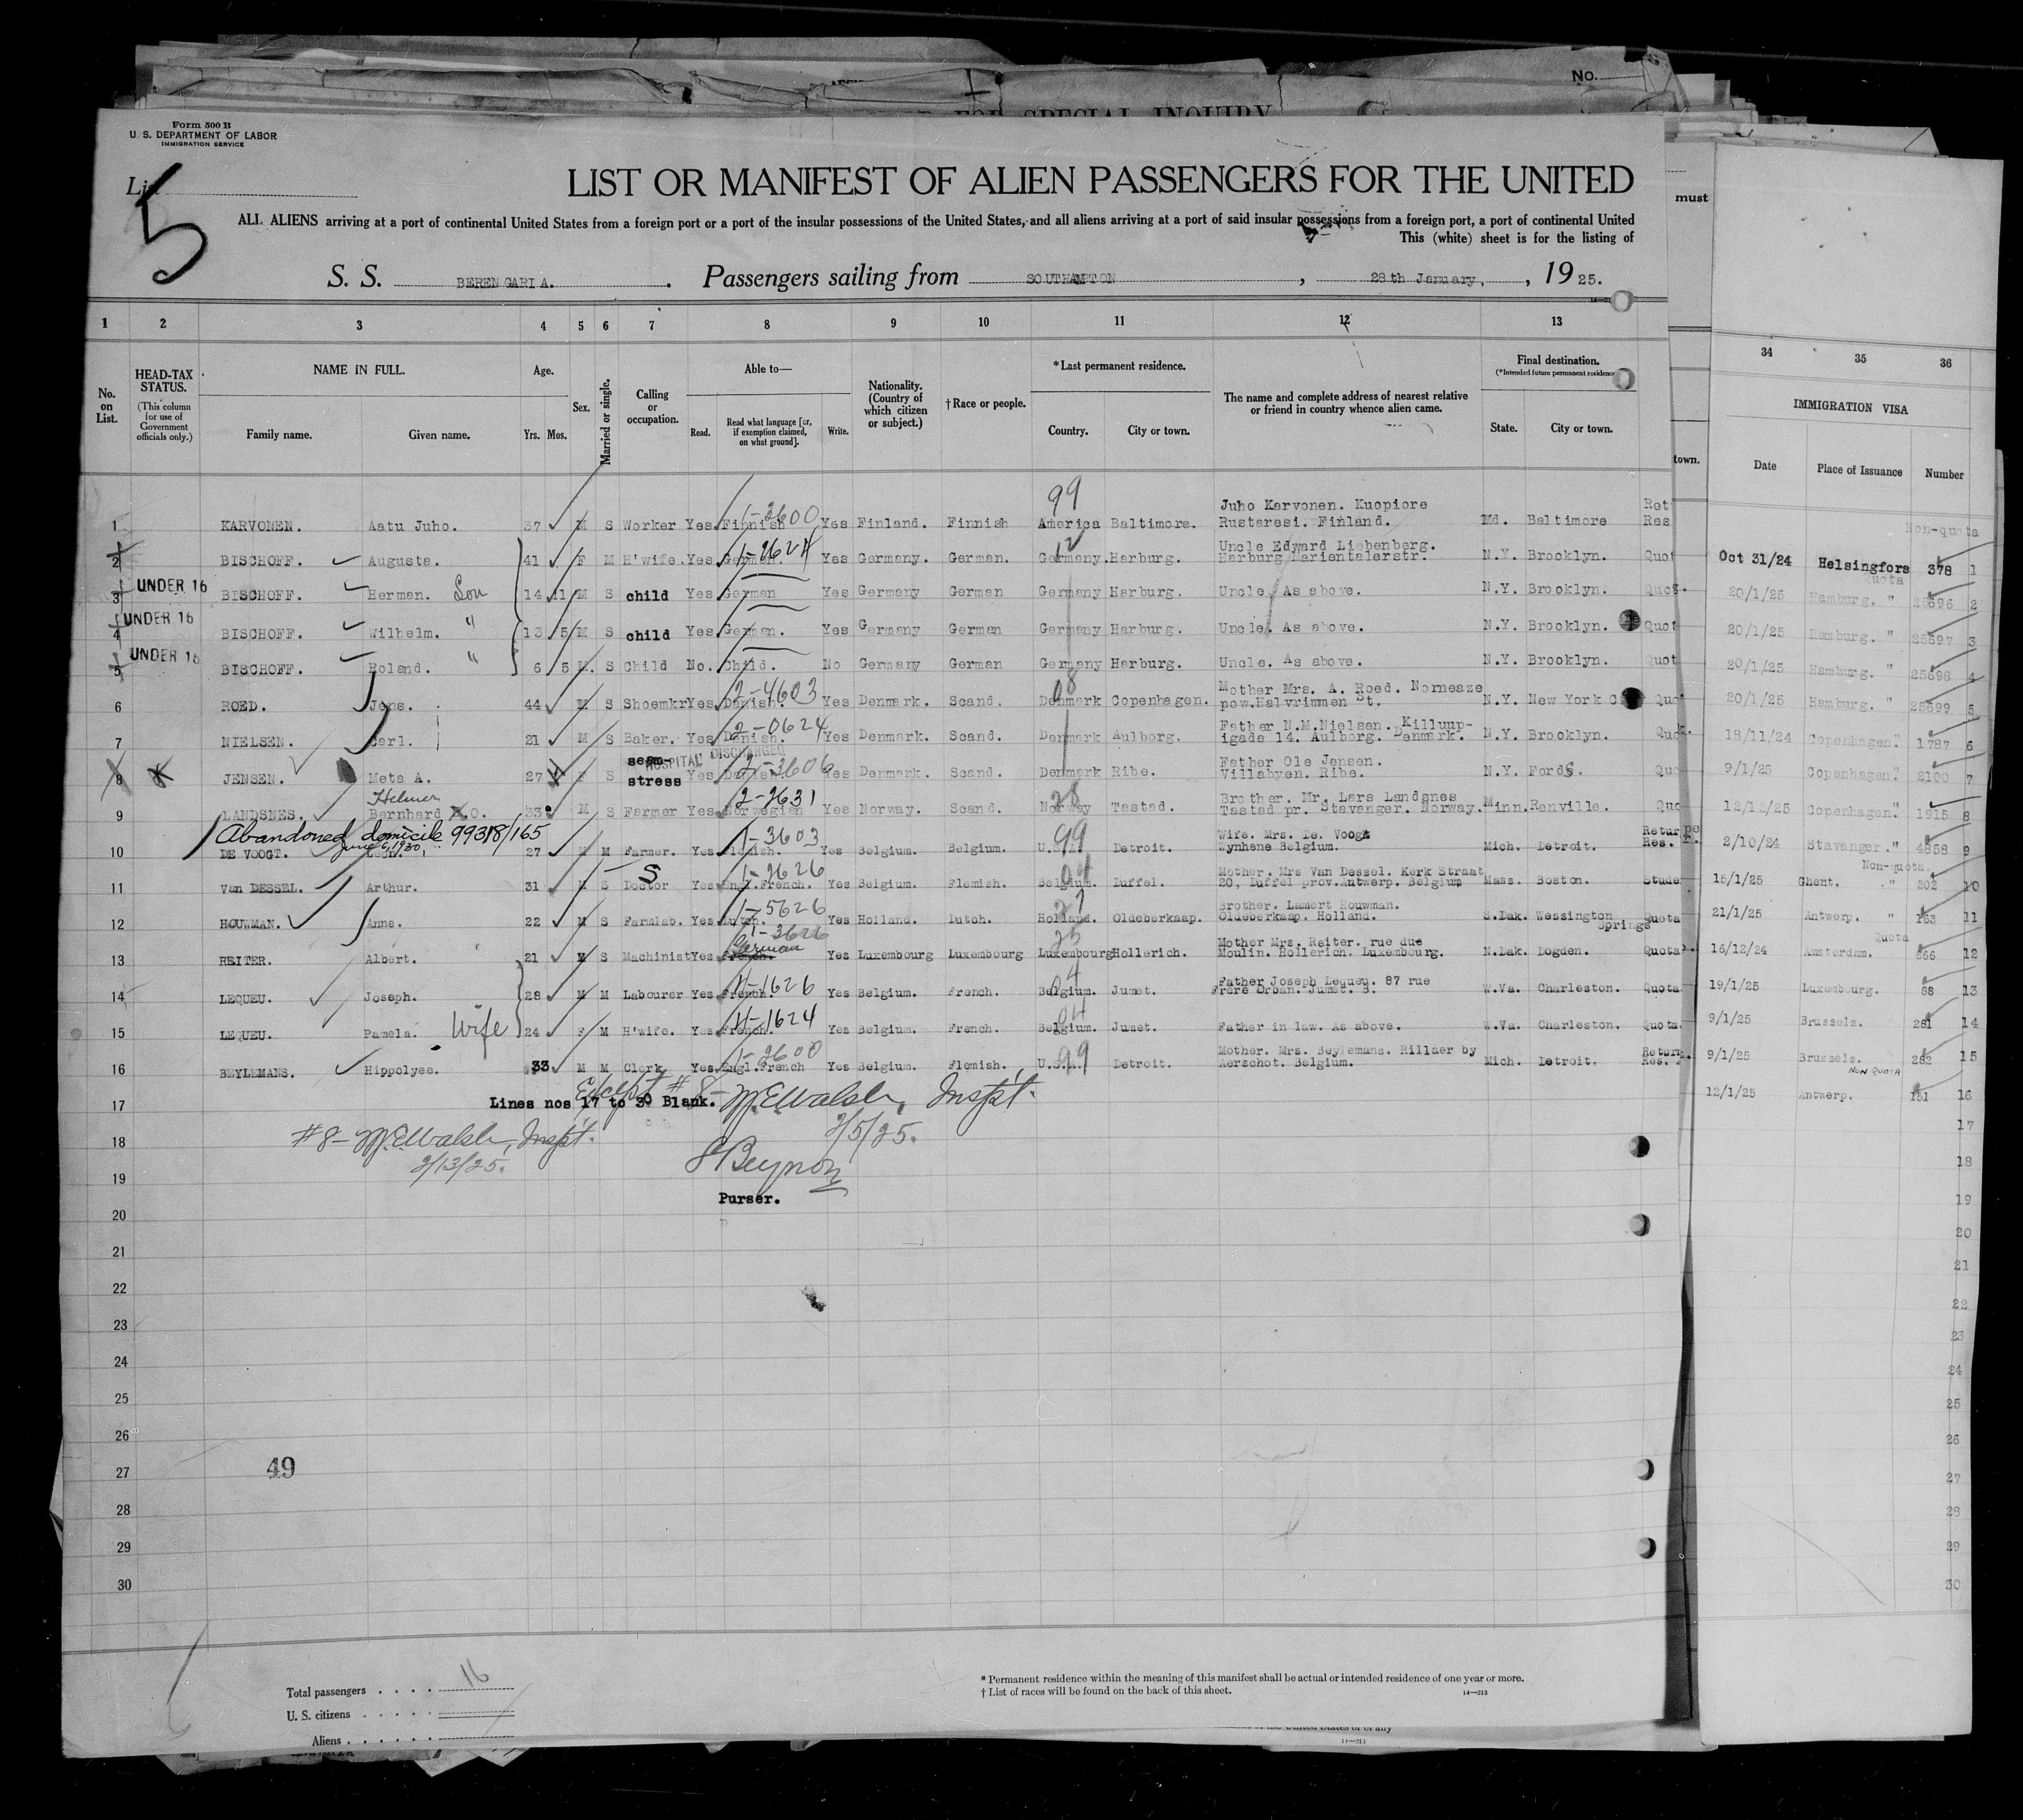 No.
FOR SPECIAL INQUIRY
Form 500 B
U. S. DEPARTMENT OF LABOR
IMMIGRATION SERVICE
List
5
LIST OR MANIFEST OF ALIEN PASSENGERS FOR THE UNITED
ALL ALIENS arriving at a port of continental United States from a foreign port or a port of the insular possessions of the United States, and all aliens arriving at a port of said insular possessions from a foreign port, a port of continental United
This (white) sheet is for the listing of
must
S. S. BERENGARIA. Passengers sailing from SOUTHAMPTON, 28th January, 1925.
1 2 3 4 5 6 7 8 9 10 11 12 13
34 35 36
No. on List.
HEAD-TAX STATUS.
(This column for use of Government officials only.)
NAME IN FULL.
Family name. Given name.
Age.
Yrs. Mos.
Sex.
Married or single.
Calling or occupation.
Able to—
Read. Read what language [or, if exemption claimed, on what ground]. Write.
Nationality. (Country of which citizen or subject.)
†Race or people.
*Last permanent residence.
Country. City or town.
The name and complete address of nearest relative or friend in country whence alien came.
Final destination.
(*Intended future permanent residence
State. City or town.
town.
IMMIGRATION VISA
Date Place of Issuance Number
1 KARVONEN. Aatu Juho. 37 M S Worker Yes Finnish 1-3600 Yes Finland. Finnish America 99 Baltimore. Juho Karvonen. Kuopiore Rustaresi. Finland. Md. Baltimore Ret Res
2 BISCHOFF. Augusta. 41 F M H'wife. Yes. German. 1-2624 Yes Germany. German. Germany. 12 Harburg. Uncle Edward Liebenberg. Harburg Marientalerstr. N.Y. Brooklyn. Quot
UNDER 16
3 BISCHOFF. Herman. Son 14 11 M S child Yes German Yes Germany German Germany Harburg. Uncle. As above. N.Y. Brooklyn. Quot.
UNDER 16
4 BISCHOFF. Wilhelm. " 13 5 M S child Yes German. Yes Germany German Germany Harburg. Uncle. As above. N.Y. Brooklyn. Quot
UNDER 16
5 BISCHOFF. Roland. " 6 5 M. S Child No. Child. No Germany German Germany Harburg. Uncle. As above. N.Y. Brooklyn. Quot
6 ROED. Jens. 44 M S Shoemkr Yes Danish. 2-4603 Yes Denmark. Scand. Denmark 08 Copenhagen. Mother Mrs. A. Roed. Norneaze pow.Halvrimmen St. N.Y. New York C Quo
7 NIELSEN. Carl. 21 M S Baker. Yes Danish. 2-0624 Yes Denmark. Scand. Denmark Aulborg. Father N.M.Nielsen. Killuup-igade 14. Aulborg. Denmark. N.Y. Brooklyn. Quo
HOSPITAL DISCHARGED
8 JENSEN. Meta A. 27 F S seam-stress Yes Danish 2-3606 Yes Denmark. Scand. Denmark Ribe. Father Ole Jensen. Villabyen. Ribe. N.Y. Fords. Quo
9 LANDSNES. Helmer Bernhard O. 33 M S Farmer Yes Norwegian 2-2631 Yes Norway. Scand. Norway 28 Tastad. Brother. Mr. Lars Landsnes Tastad pr. Stavanger. Norway. Minn. Renville. Quo
Abandoned domicile 99318/165
June 6, 1930
10 DE VOOGT. Leon. 27 M M Farmer. Yes Flemish. 1-3603 Yes Belgium. Belgium. U.S.A. 99 Detroit. Wife. Mrs. De. Voogt Wynhene Belgium. Mich. Detroit. Return Res. P.
11 Van DESSEL. Arthur. 31 M S Doctor S Yes Engl.French. 1-2626 Yes Belgium. Flemish. Belgium. 04 Duffel. Mother. Mrs Van Dessel. Kerk Straat 20, Duffel prov.Antwerp. Belgium Mass. Boston. Stude
12 HOUWMAN. Anne. 22 M S Farmlab. Yes Dutch. 1-5626 Yes Holland. Dutch. Holland. 27 Oldeberkaap. Brother. Lamert Houwman. Oldeberkaap. Holland. S.Dak. Wessington Springs Quota
13 REITER. Albert. 21 M S Machinist Yes French. German 1-3626 Yes Luxembourg Luxembourg Luxembourg 25 Hollerich. Mother Mrs. Reiter. rue due Moulin. Hollerich. Luxembourg. N.Dak. Dogden. Quota
14 LEQUEU. Joseph. 28 M M Labourer Yes French. 4-1626 Yes Belgium. French. Belgium. 04 Jumet. Father Joseph Lequeu. 87 rue Frere Orban. Jumet. B. W.Va. Charleston. Quota
15 LEQUEU. Pamela. Wife 24 F M H'wife. Yes French. 4-1624 Yes Belgium. French. Belgium. 04 Jumet. Father in law. As above. W.Va. Charleston. Quota
16 BEYLEMANS. Hippolyee. 33 M M Clerk Yes Engl.French 1-2600 Yes Belgium. Flemish. U.S.A. 99 Detroit. Mother. Mrs. Beylemans. Rillaer by Aerschot. Belgium. Mich. Detroit. Return. Res.
Except #8-
17 Lines nos 17 to 30 Blank. W.E.Walsh, Inspt.
2/5/25.
18 #8- W.E.Walsh, Inspt.
2/13/25.
Beynon
19 Purser.
20
21
22
23
24
25
26
27
49
28
29
30
Non-quota
Oct 31/24 Helsingfors 378 1
Quota
20/1/25 Hamburg. " 25696 2
20/1/25 Hamburg. " 25697 3
20/1/25 Hamburg. " 25698 4
20/1/25 Hamburg. " 25699 5
18/11/24 Copenhagen." 1787 6
9/1/25 Copenhagen." 2100 7
12/12/25 Copenhagen." 1915 8
2/10/24 Stavanger." 4858 9
Non-quota.
15/1/25 Ghent. " 202 10
21/1/25 Antwerp. " 163 11
Quota
16/12/24 Amsterdam. 666 12
19/1/25 Luxembourg. 88 13
9/1/25 Brussels. 281 14
9/1/25 Brussels. 282 15
NON QUOTA
12/1/25 Antwerp. 151 16
17
18
19
20
21
22
23
24
25
26
27
28
29
30
Total passengers . . . . 16
U. S. citizens . . . . .
Aliens . . . . . .
* Permanent residence within the meaning of this manifest shall be actual or intended residence of one year or more.
† List of races will be found on the back of this sheet.
14—213
14—213